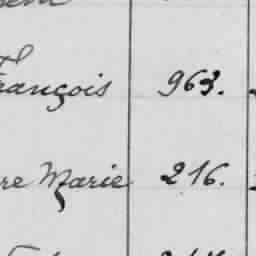 François 963.
re Marie 216.